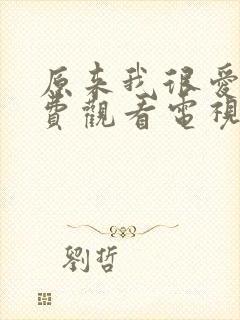 原来我很愛
費觀看電視
劉哲